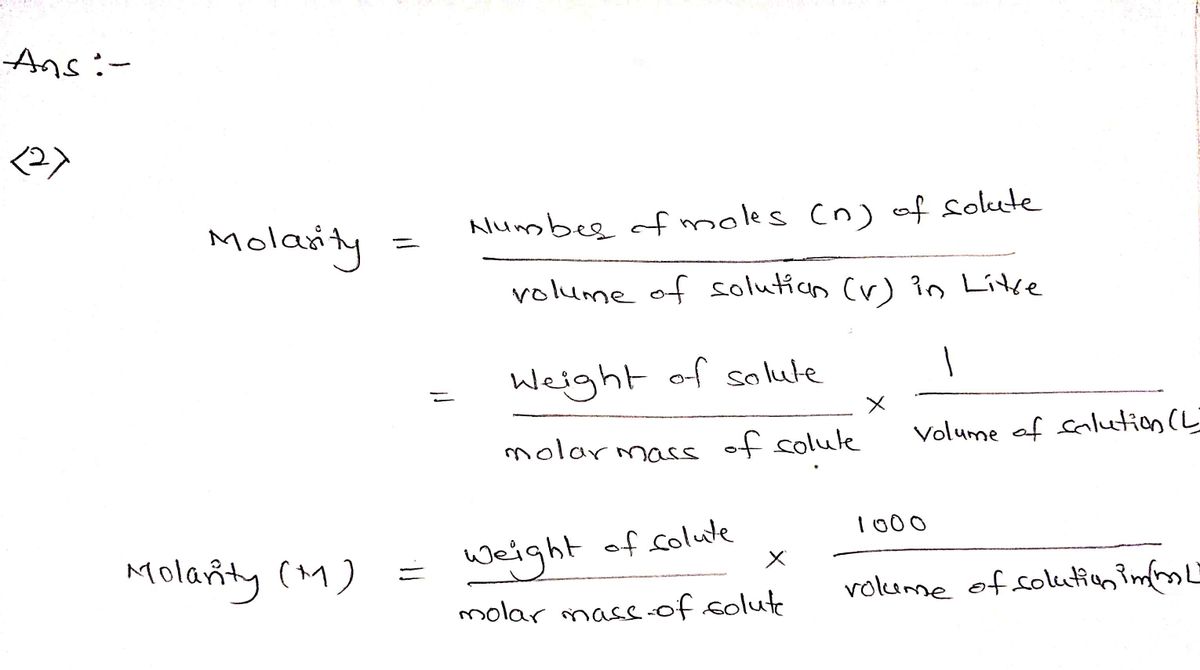 Ans :-
<2>
Molarity = Number of moles (n) of solute
volume of solution (v) in Litre
= Weight of solute × 1
molar mass of solute volume of solution (L
Molarity (M) = weight of solute × 1000
molar mass of solute volume of solution in (mL